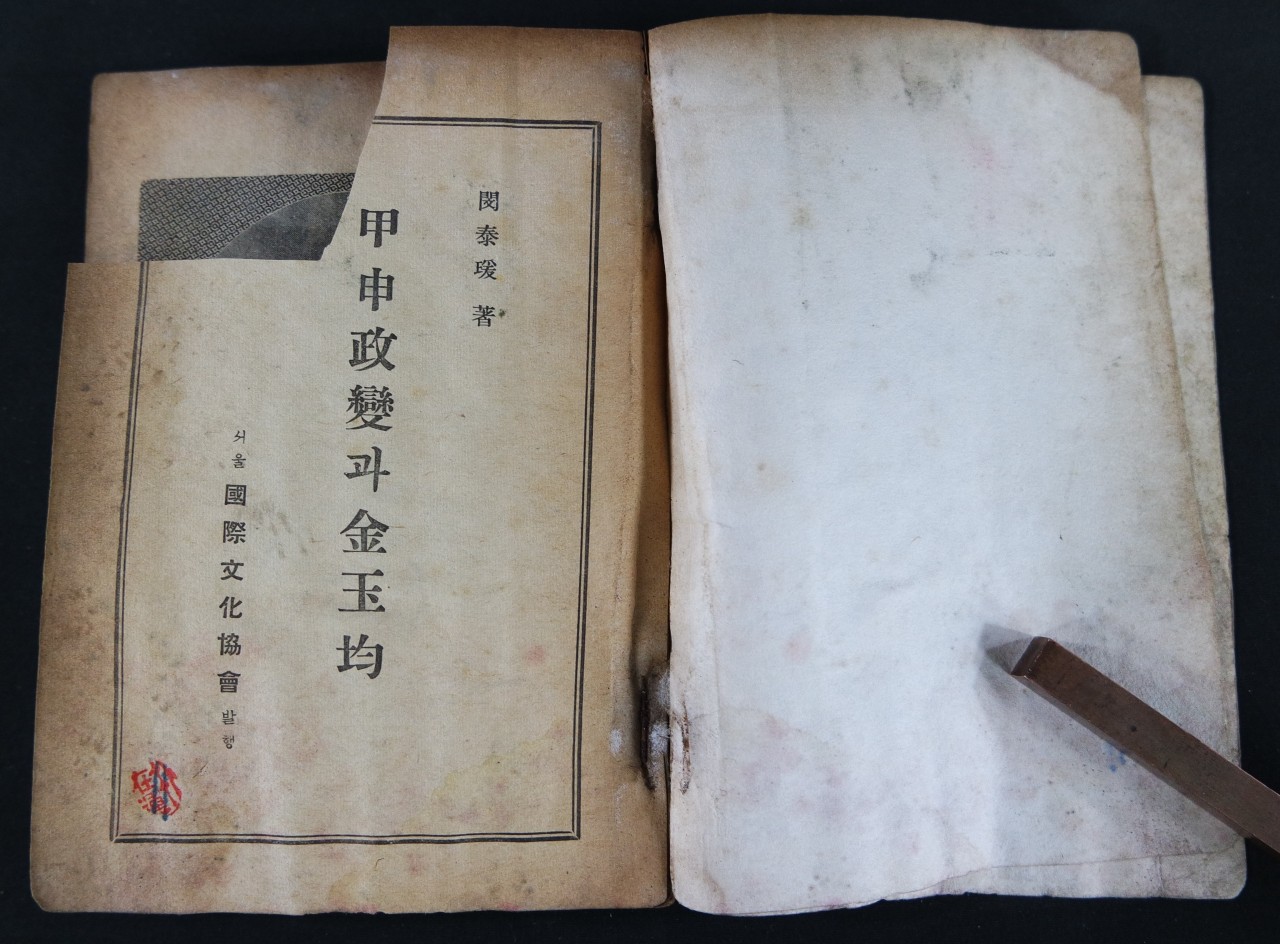 閔泰瑗 著
甲申政變과金玉均
서울 國際文化協會 발행